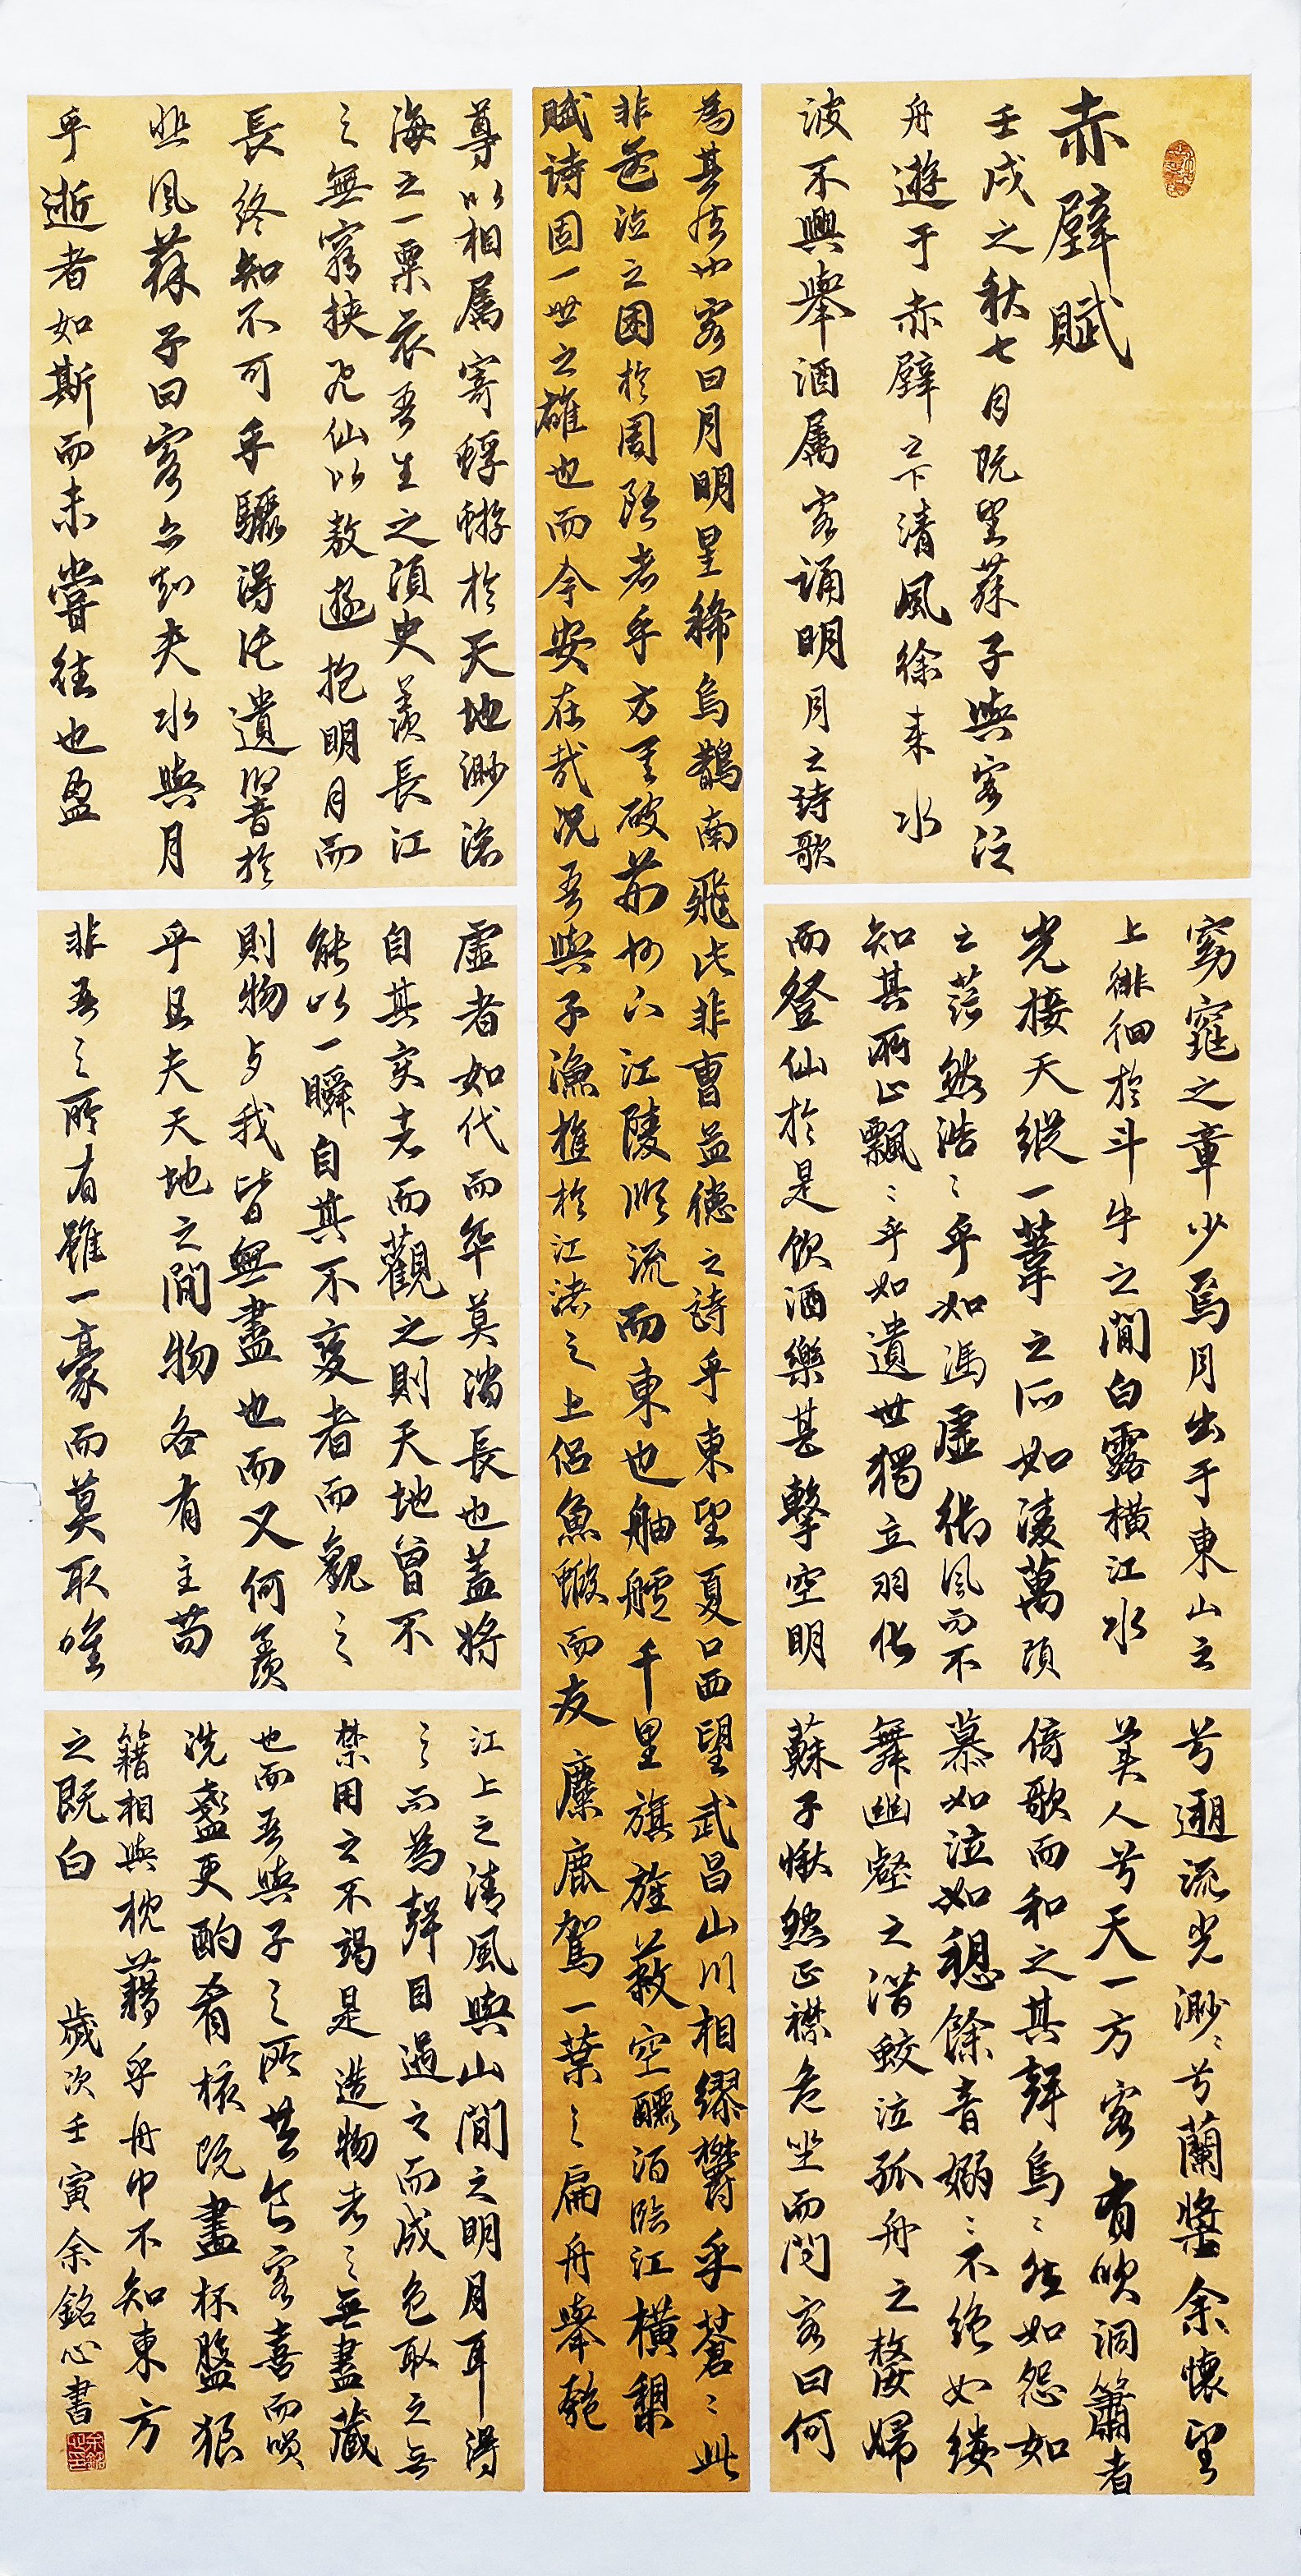 赤壁賦
壬戌之秋七月既望蘇子與客泛
舟遊于赤壁之下清風徐来水
波不興舉酒属客誦明月之詩歌
窈窕之章少焉月出于東山之
上徘徊於斗牛之間白露橫江水
光接天縱一葦之所如凌萬頃
之茫然浩〻乎如馮虛御風而不
知其所止飄〻乎如遺世獨立羽化
而登仙於是飲酒樂甚擊空明
兮遡流光渺〻兮蘭槳余懷望
美人兮天一方客有吹洞簫者
倚歌而和之其聲烏〻然如怨如
慕如泣如餘音嫋〻不絕如縷
舞幽壑之潛蛟泣孤舟之嫠婦
蘇子愀然正襟危坐而問客曰何
為其然也客曰月明星稀烏鵲南飛此非曹孟德之詩乎東望夏口西望武昌山川相繆欝乎蒼〻此
非孟德之困於周郎者乎方其破荊州下江陵順流而東也舳艫千里旗旌蔽空釃酒臨江橫槊
賦詩固一世之雄也而今安在哉況吾與子漁樵於江渚之上侶魚蝦而友麋鹿駕一葉之扁舟舉匏
尊以相属寄蜉蝣於天地渺滄
海之一粟哀吾生之須臾羨長江
之無窮挾飛仙以敖遊抱明月而
長終知不可乎驟得託遺響於
悲風蘇子曰客亦知夫水與月
乎逝者如斯而未嘗往也盈
虛者如代而卒莫消長也蓋將
自其变者而觀之則天地曾不
能以一瞬自其不变者而觀之
則物与我皆無盡也而又何羨
乎且夫天地之間物各有主苟
非吾之所有雖一豪而莫取唯
江上之清風與山間之明月耳得
之而為聲目遇之而成色取之無
禁用之不竭是造物者之無盡藏
也而吾與子之所共食客喜而笑
洗盞更酌肴核既盡杯盤狼
籍相與枕藉乎舟中不知東方
之既白
歲次壬寅余銘心書